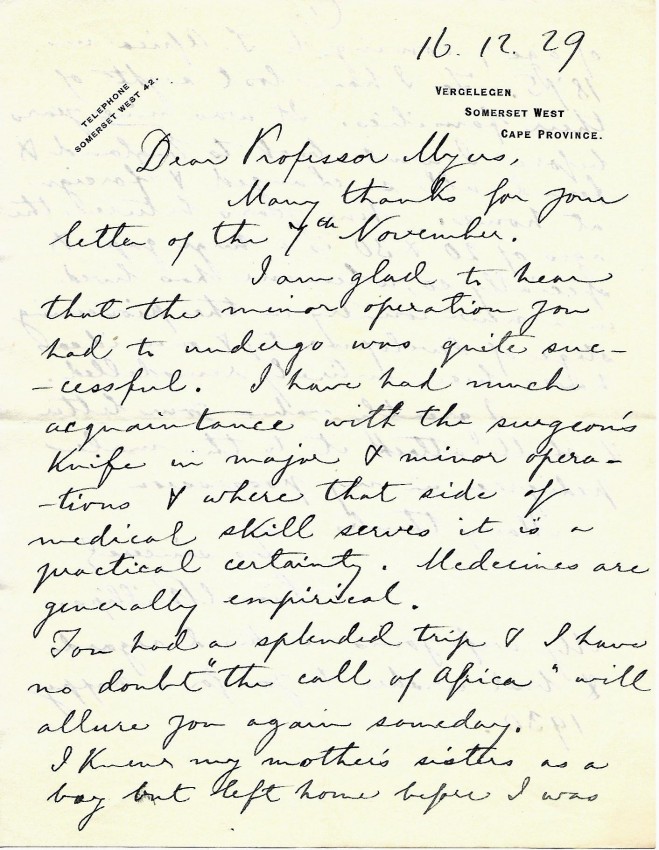 16.12.29
TELEPHONE
SOMERSET WEST 42.
VERGELEGEN
SOMERSET WEST
CAPE PROVINCE.
Dear Professor Myers,
Many thanks for your
letter of the 7th November.
I am glad to hear
that the minor operation you
had to undergo was quite suc-
-cessful. I have had much
acquaintance with the surgeon's
Knife in major & minor opera-
-tions & where that side of
medical skill serves it is a
practical certainty. Medecines are
generally empirical.
You had a splended trip & I have
no doubt "the call of Africa" will
allure you again someday.
I Knew my mother's sisters as a
boy but left home before I was